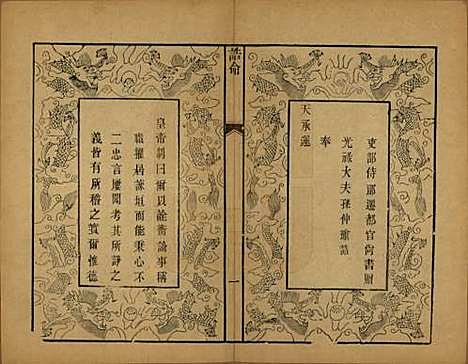 吏部侍郎遷都官尚書贈
光祿大夫孫仲誥
奉
天承運
誥命
一
皇帝制曰爾以詮衡論事稱
職擢居諫垣而能秉心不
二忠言屢聞考其所諍之
義皆有所稽之實爾惟德